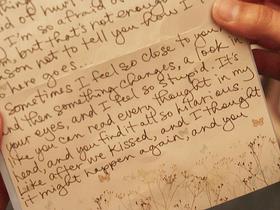 ing of hurt
I'm so afraid of
m, but that's not enough
ason not to tell you how I
o here goes...
Sometimes I feel so close to you
nd then something changes, a look in
your eyes, and I feel so stupid. It's
like you can read every thought in my
head, and you find it all so hilarious.
Like after we kissed, and I thought
it might happen again, and you